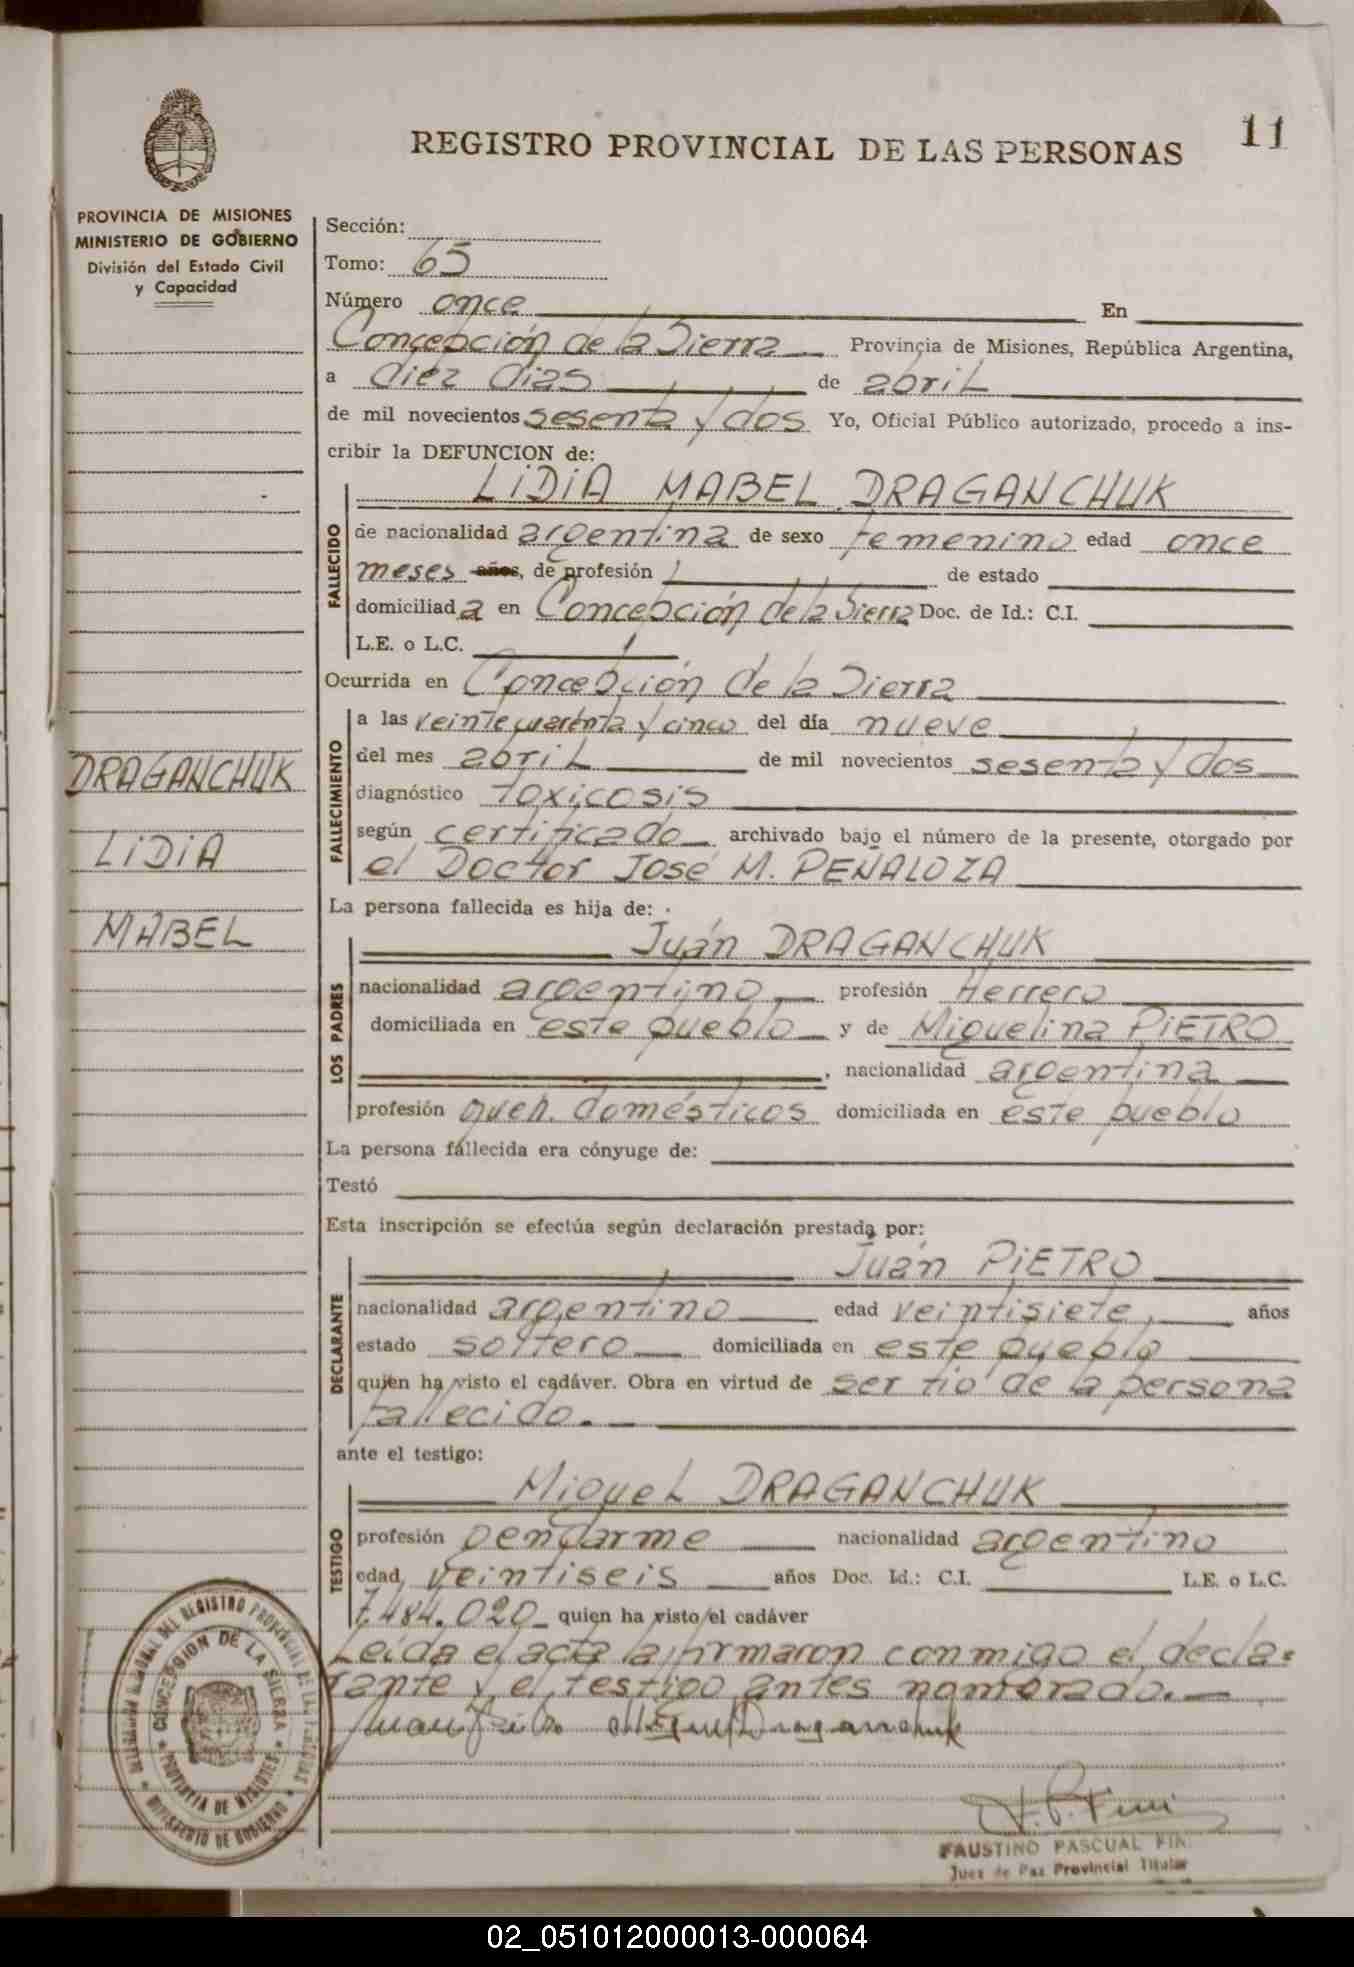 11
REGISTRO PROVINCIAL DE LAS PERSONAS
PROVINCIA DE MISIONES
MINISTERIO DE GOBIERNO
División del Estado Civil
y Capacidad
DRAGANCHUK
LIDIA
MABEL
Sección:
Tomo: 65
Número once En
Concepción de la Sierra Provincia de Misiones, República Argentina,
a diez dias de abril
de mil novecientos sesenta y dos Yo, Oficial Público autorizado, procedo a ins-
cribir la DEFUNCION de:
LIDIA MABEL DRAGANCHUK
FALLECIDO
de nacionalidad argentina de sexo femenino edad once
meses años, de profesión de estado
domiciliada en Concepción de la Sierra Doc. de Id.: C.I.
L.E. o L.C.
Ocurrida en Concepción de la Sierra
FALLECIMIENTO
a las veinte cuarenta y cinco del día nueve
del mes abril de mil novecientos sesenta y dos
diagnóstico toxicosis
según certificado archivado bajo el número de la presente, otorgado por
el Doctor José M. PEÑALOZA
La persona fallecida es hija de:
LOS PADRES
Juán DRAGANCHUK
nacionalidad argentino profesión Herrero
domiciliada en este pueblo y de Miguelina PIETRO
, nacionalidad argentina
profesión queh. domésticos domiciliada en este pueblo
La persona fallecida era cónyuge de:
Testó
Esta inscripción se efectúa según declaración prestada por:
DECLARANTE
Juán PIETRO
nacionalidad argentino edad veintisiete, años
estado soltero domiciliada en este pueblo
quien ha visto el cadáver. Obra en virtud de ser tio de la persona
fallecido.
ante el testigo:
TESTIGO
Miguel DRAGANCHUK
profesión gendarme nacionalidad argentino
edad veintiseis años Doc. Id.: C.I. L.E. o L.C.
7.484.020 quien ha visto el cadáver
Leida el acta la firmaron conmigo el decla-
rante y el testigo antes nombrado.
Miguel Draganchuk
CONCEPCION DE LA SIERRA
PROVINCIA DE MISIONES
MINISTERIO DE GOBIERNO
FAUSTINO PASCUAL FINI
Juez de Paz Provincial Titular
02_051012000013-000064